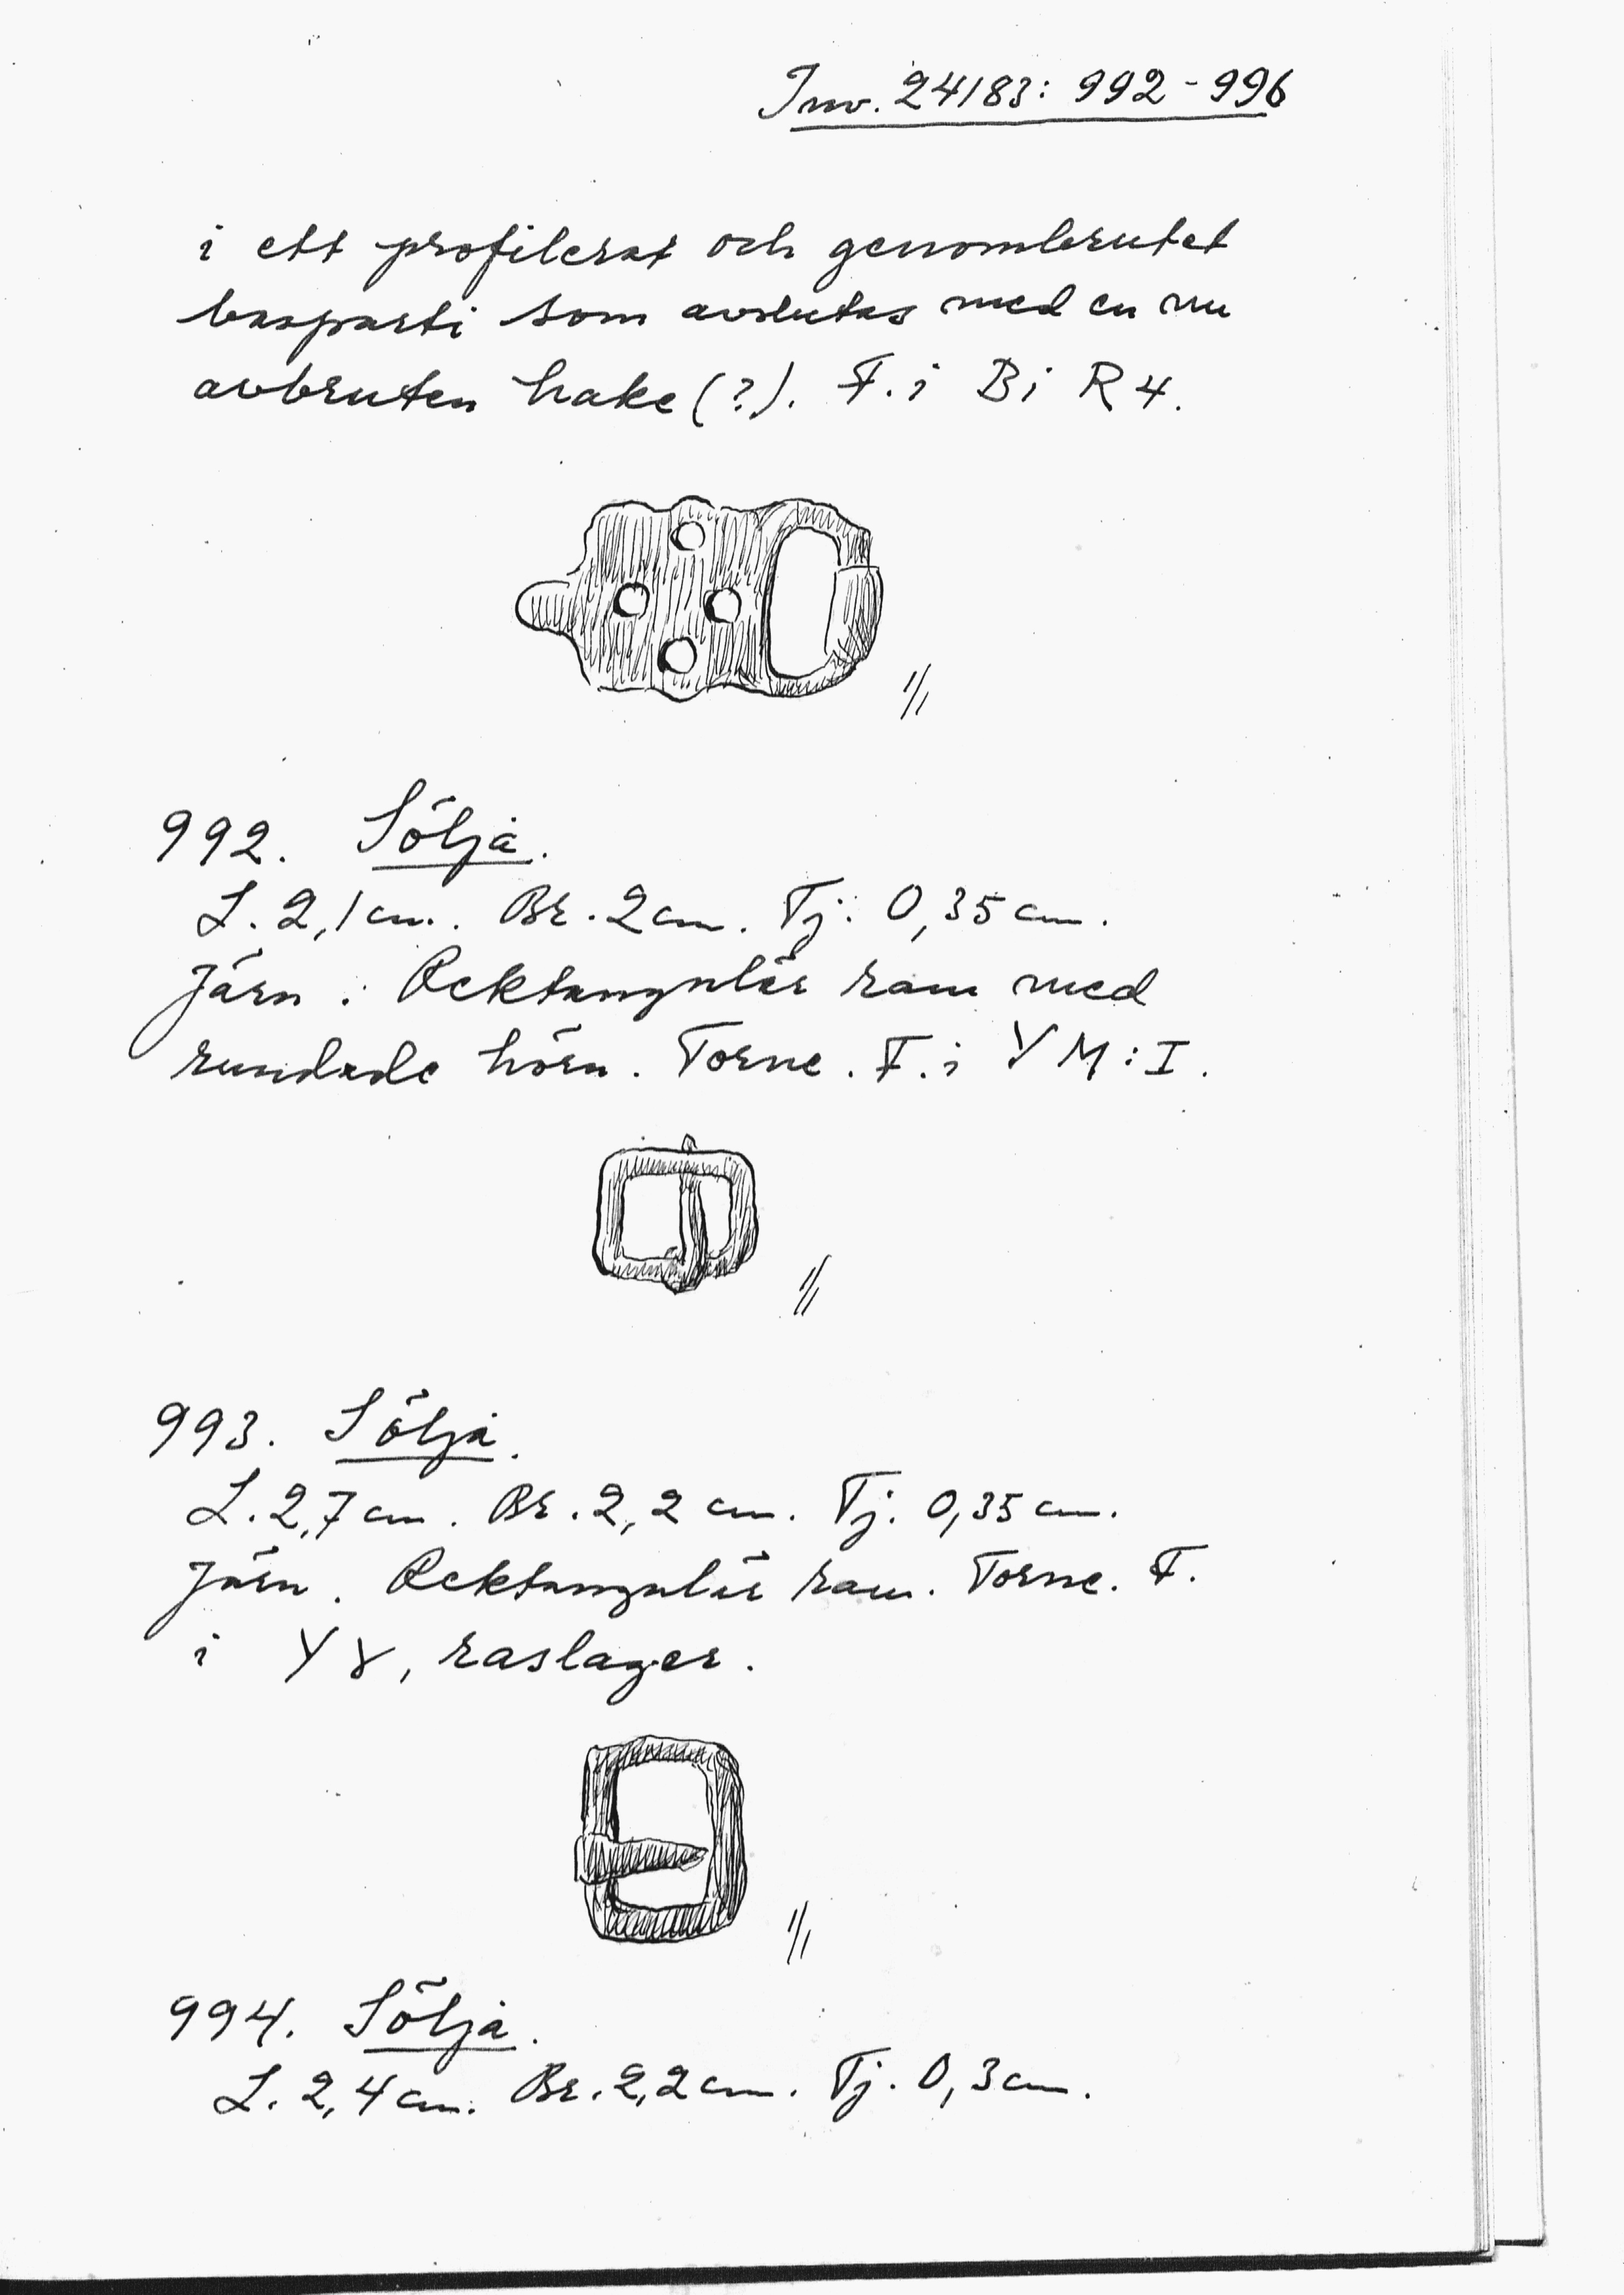 Inv. 24183: 992-996
i ett profilerat och genombrutet
basparti som avslutas med en nu
avbruten hake (?). F. i B i R 4.
1/1
992. Sölja.
L. 2,1 cm. Br. 2 cm. Tj. 0,35 cm.
Järn. Rektangulär ram med
rundade hörn. Torne. F. i Y M:I.
1/1
993. Sölja.
L. 2,7 cm. Br. 2,2 cm. Tj. 0,35 cm.
Järn. Rektangulär ram. Torne. F.
i Y, raslager.
1/1
994. Sölja.
L. 2,4 cm. Br. 2,2 cm. Tj. 0,3 cm.